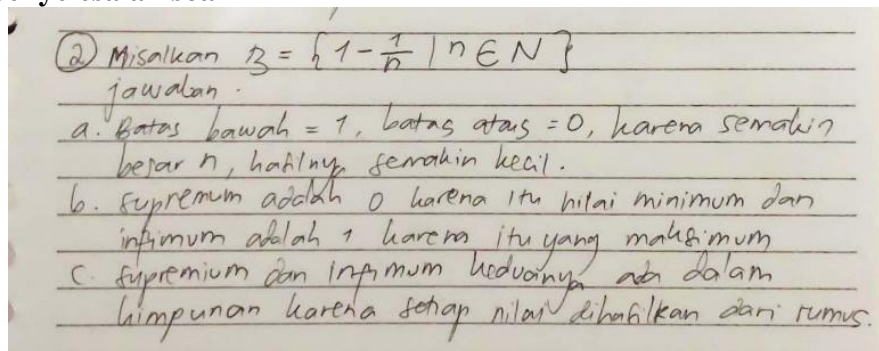 ② Misalkan B = {1 - 1/n | n ∈ N}
jawaban.
a. Batas bawah = 1, batas atas = 0, karena semakin
besar n, hasilnya semakin kecil.
b. supremum adalah 0 karena itu nilai minimum dan
infimum adalah 1 karena itu yang maksimum
c. supremium dan infimum keduanya ada dalam
himpunan karena setiap nilai dihasilkan dari rumus.